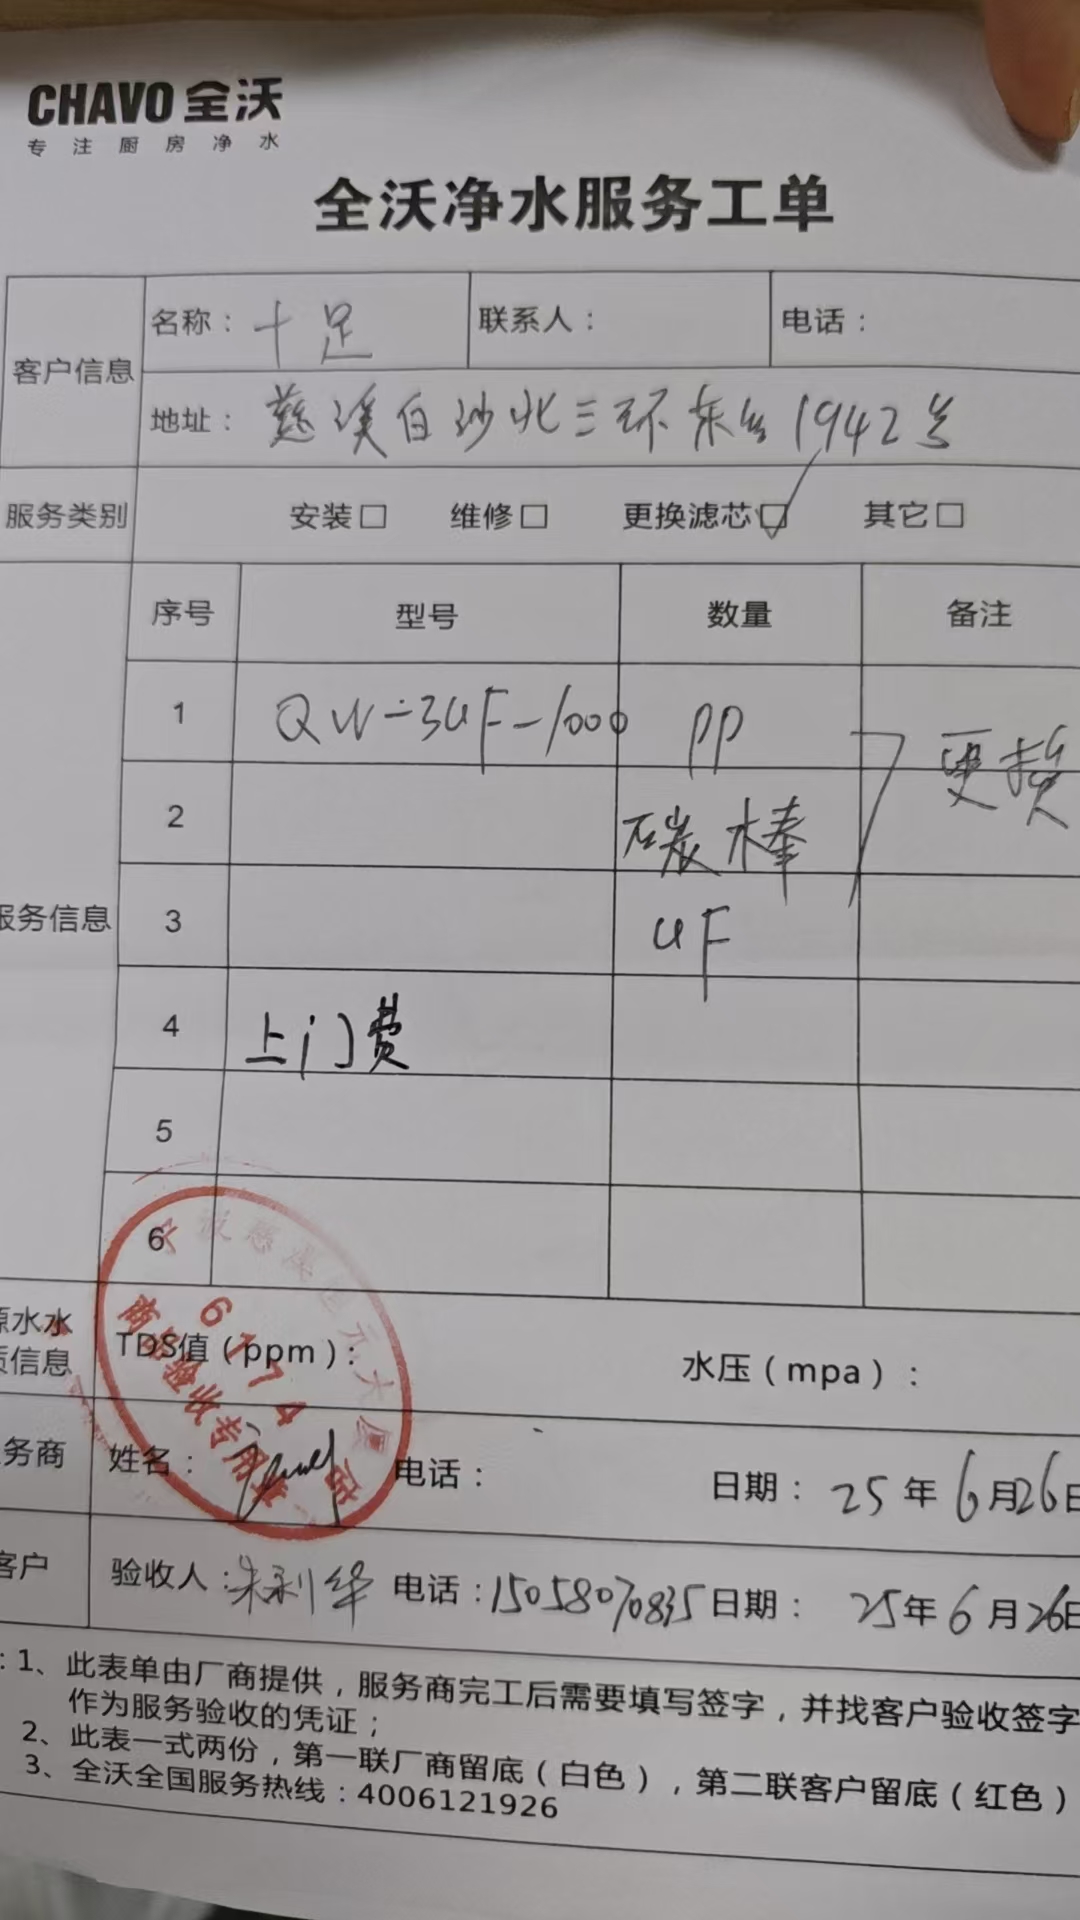 CHAVO 全沃
专注厨房净水
全沃净水服务工单
客户信息
名称：十足
联系人：
电话：
地址：慈溪白沙北三环东路1942号
服务类别
安装□ 维修□ 更换滤芯☑ 其它□
序号 型号 数量 备注
1 QW-3UF-1000 PP 更换
2 碳棒
3 UF
服务信息
4 上门费
5
6
源水水
质信息
TDS值（ppm）：
水压（mpa）：
6174
商品验收专用章
务商
姓名：
电话：
日期：25年6月26日
客户
验收人：朱利华 电话：15058070835 日期：25年6月26日
：1、此表单由厂商提供，服务商完工后需要填写签字，并找客户验收签字
作为服务验收的凭证；
2、此表一式两份，第一联厂商留底（白色），第二联客户留底（红色）
3、全沃全国服务热线：4006121926